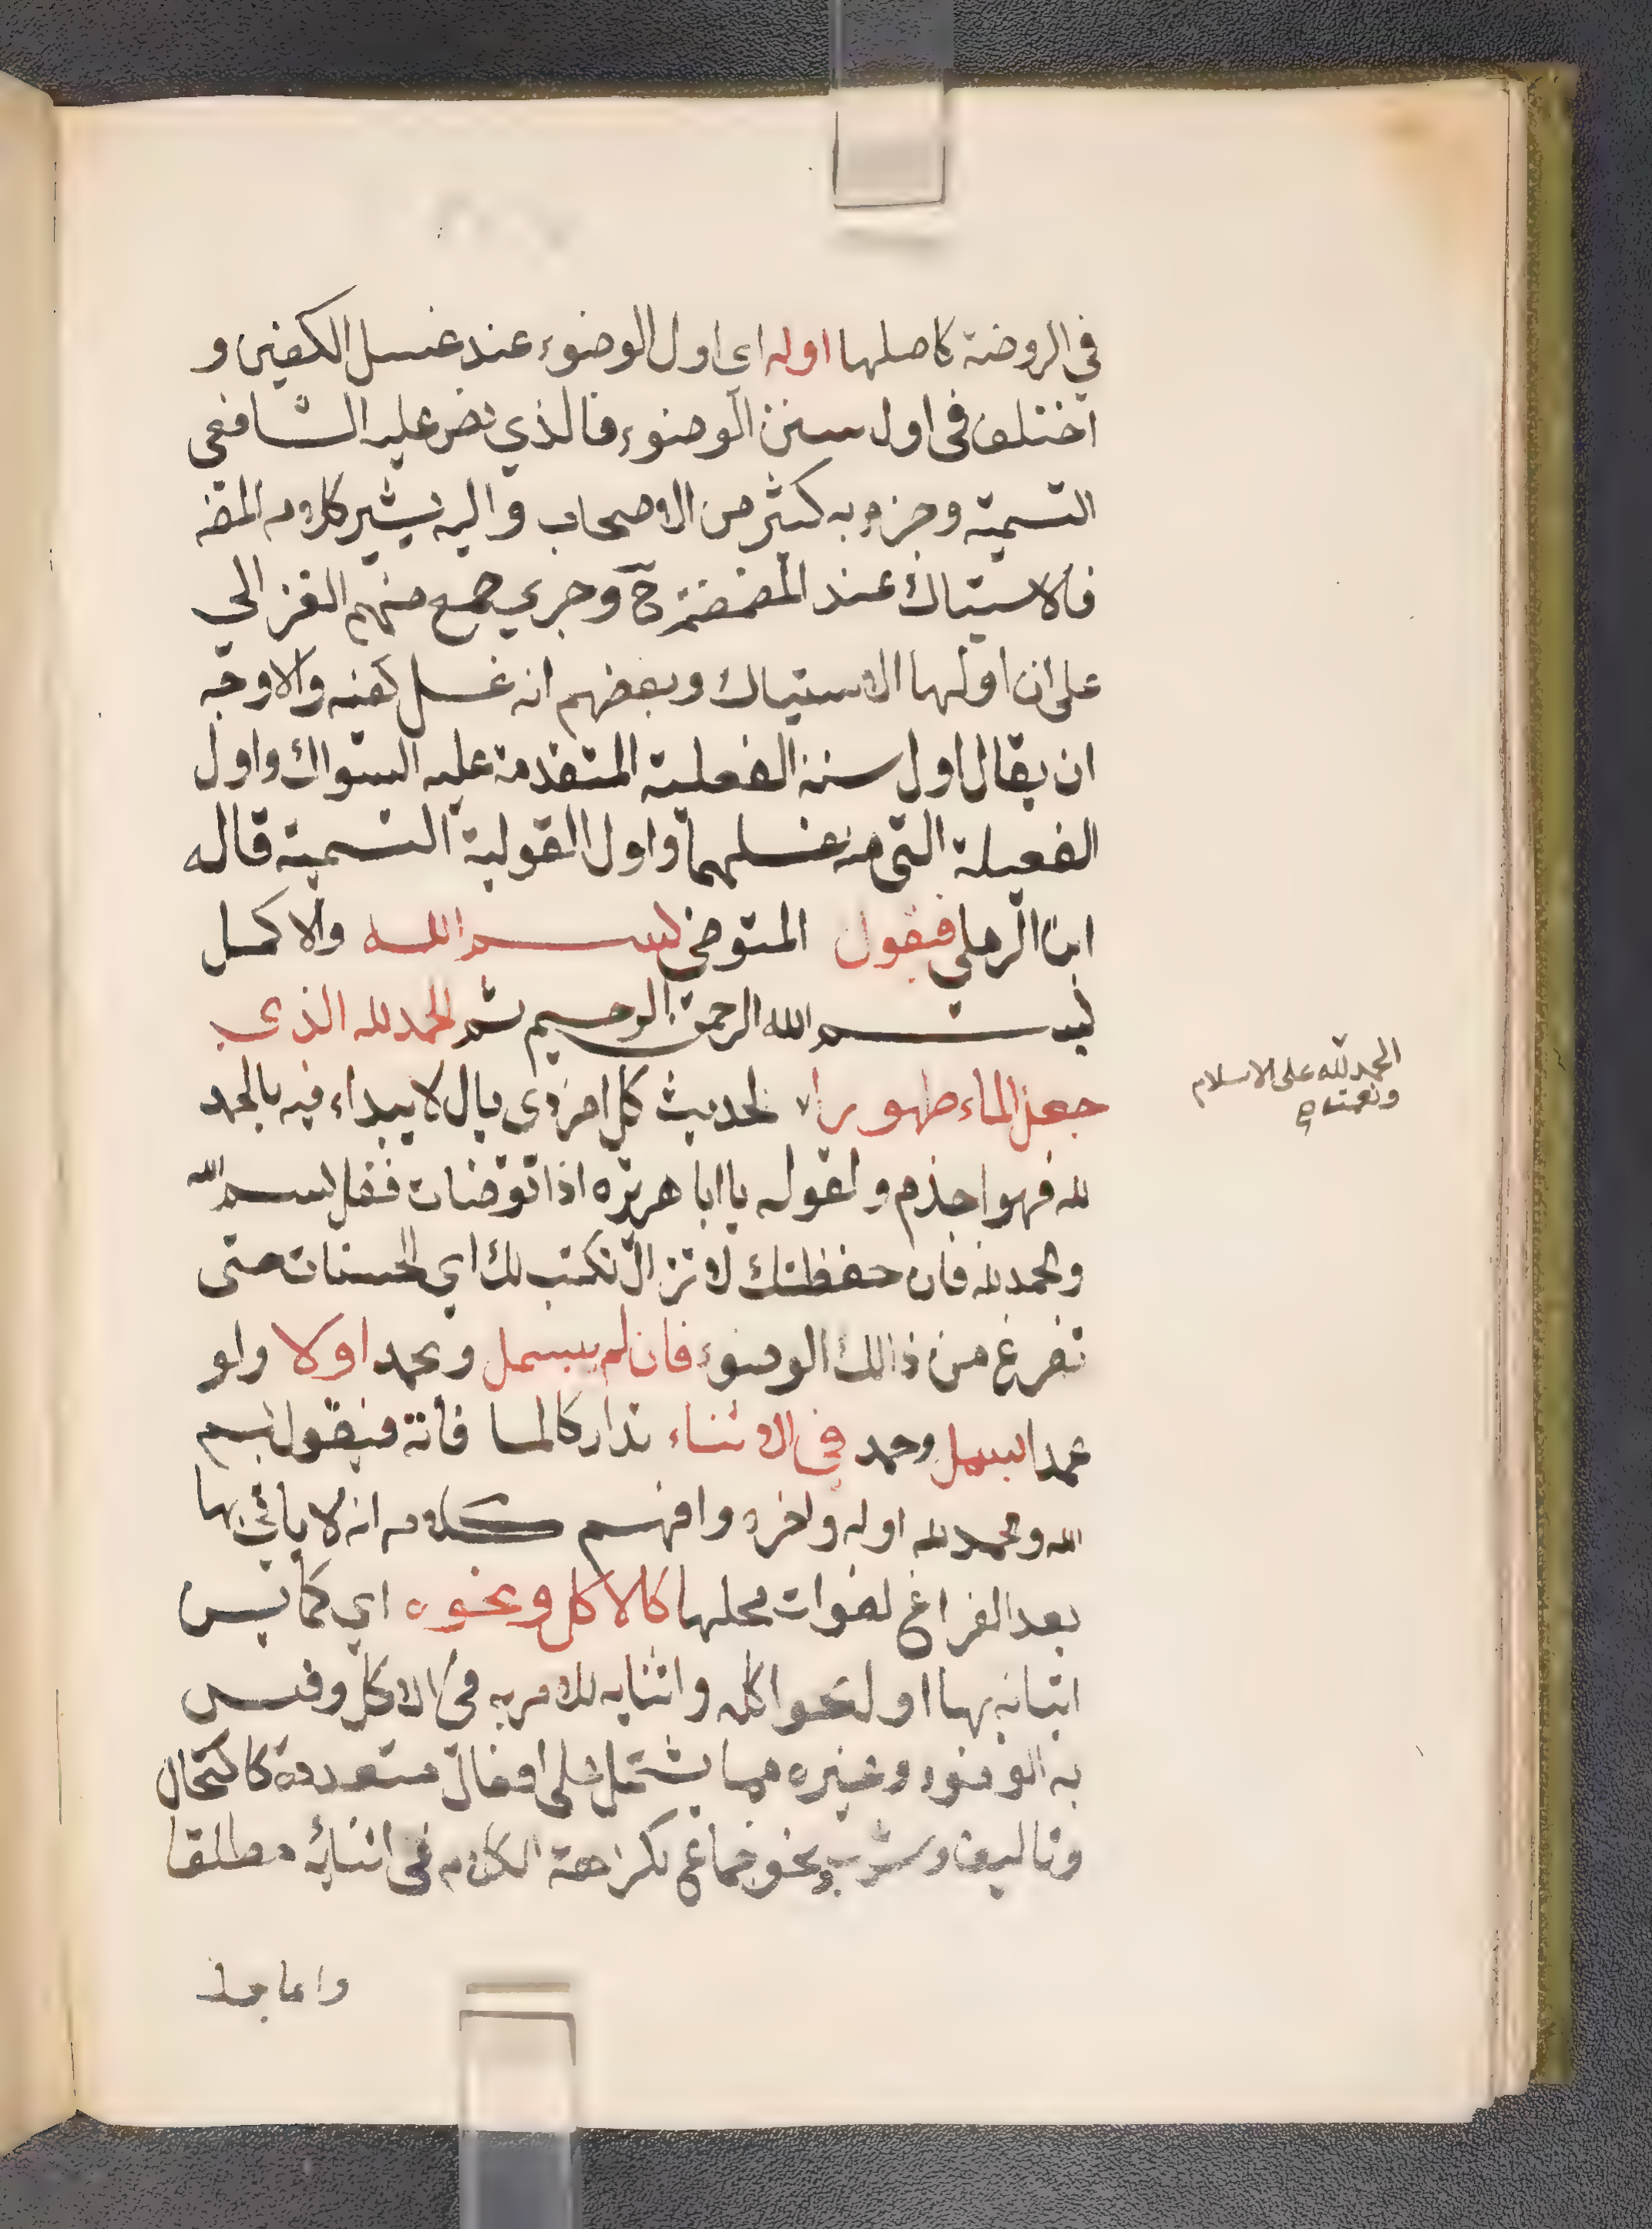 في الروضة كاصلها اوله اي اول الوضوء عند غسل الكفين و
اختلف في اول سنن الوضوء فالذي نص عليه الشافعي
التسمية وجزم به كثير من الاصحاب واليه يشير كلامه المص
فالاستياك عند المضمضة ح وجرى جمع منهم الغزالي
على ان اولها الاستياك وبعضهم انه غسل كفيه والاوجه
ان يقال اول سننه الفعلية المتقدمة عليه السواك واول
الفعيلة التي منه غسلهما واول القولية التسمية قاله
ابن الرملي فيقول المتوضي بسم الله والاكمل
بسم الله الرحمن الرحيم ثم الحمد لله الذي
جعل الماء طهورا لحديث كل امر ذي بال لا يبداء فيه بالحمد
لله فهو اجذم ولقوله يا ابا هريره اذا توضات فقل بسم الله
والحمد لله فان حفظتك لا تزال تكتب لك اي الحسنات حتى
تفرغ من ذالك الوضوء فان لم يبسمل ويحمد اولا ولو
عمدا بسمل وحمد في الاثناء تداركا لما فاته فيقول بسم
الله والحمد لله اوله واخره وافهم كلامه انه لا ياتي بها
بعد الفراغ لفوات محلها كالاكل ونحوه اي كما يسن
اتيانه بها اول نحو اكله واثنايه للامر به في الاكل وقيس
به الوضوء وغيره مما يشتمل على افعال متعددة كاكتحال
وتاليف وشرب ونحو جماع لكراهة الكلام في اثنايه مطلقا
الحمد لله على الاسلام
ونعمته
واما